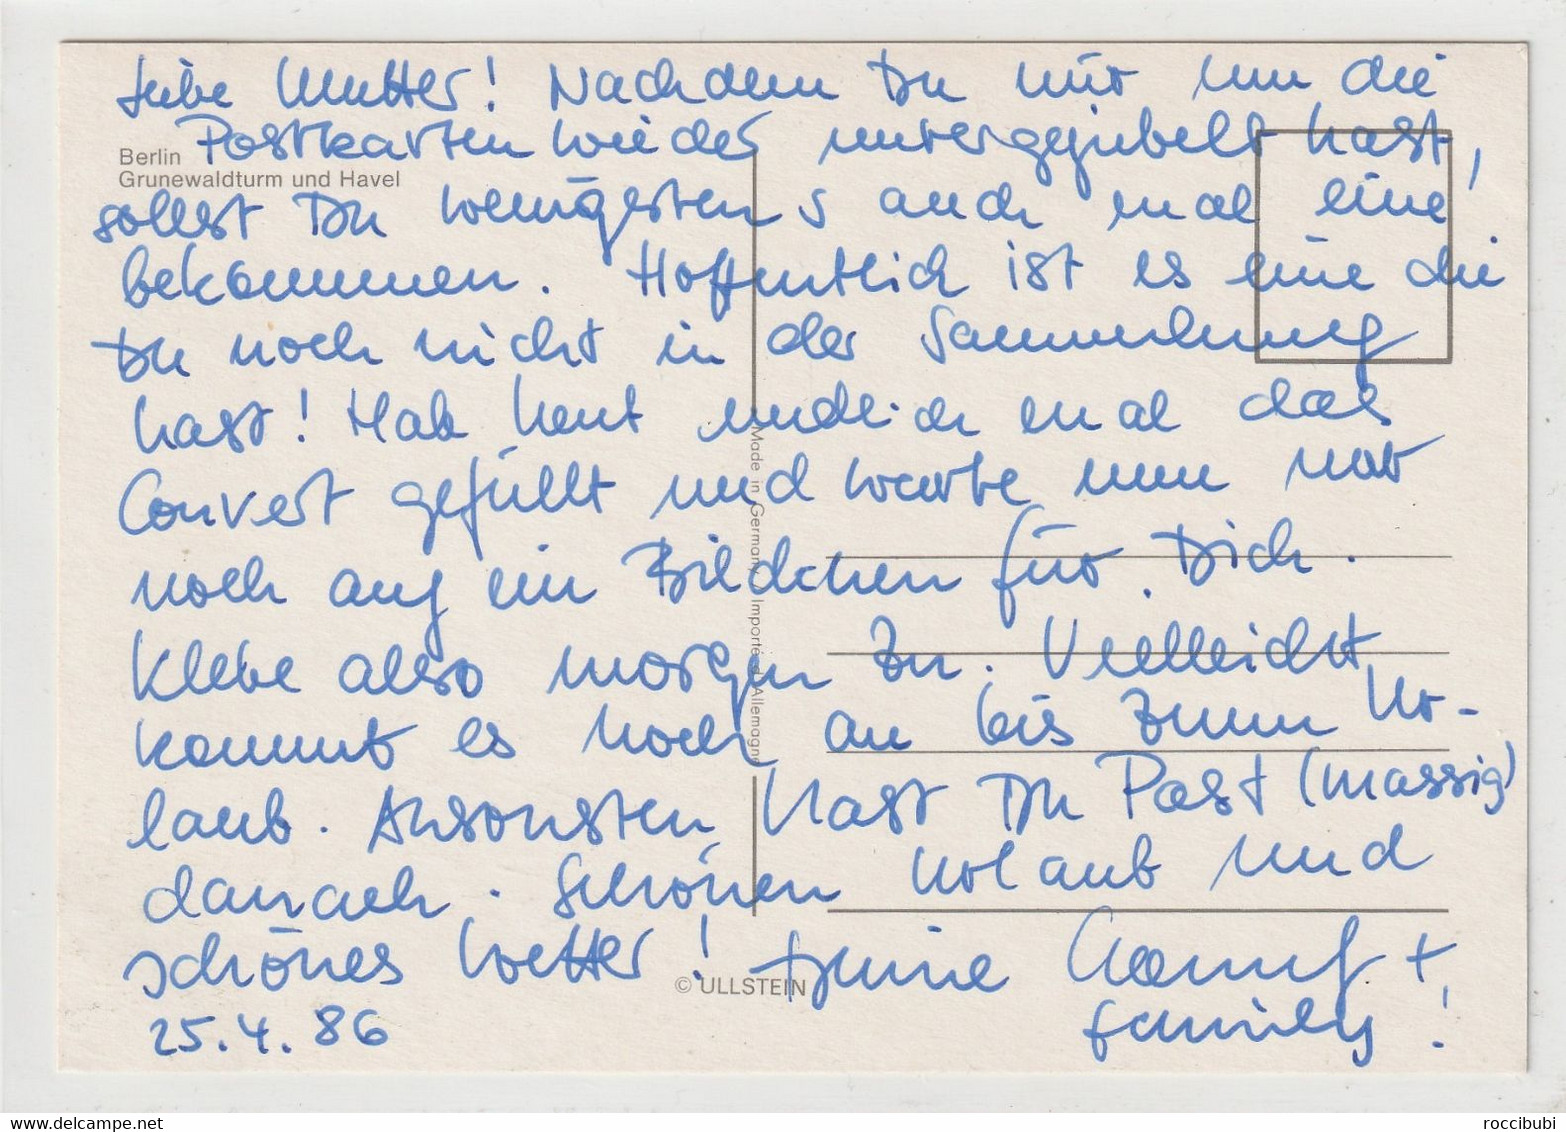 Liebe Mutter! Nachdem Du mir nun die
Postkarten wieder untergejubelt hast,
Berlin
Grunewaldturm und Havel
sollst Du wenigstens auch mal eine
bekommen. Hoffentlich ist es eine die
Du noch nicht in der Sammlung
hast! Hab heut endlich mal das
Convert gefüllt und warte nun nur
noch auf ein Bildchen für Dich.
Klebe also morgen zu. Vielleicht
kommt es noch an bis zum Ur-
laub. Ansonsten hast Du Post (massig)
danach. Schönen Urlaub und
schönes Wetter! Deine +
family!
25.4.86
Made in Germany Importé d'Allemagne
© ULLSTEIN
delcampe.net
roccibubi